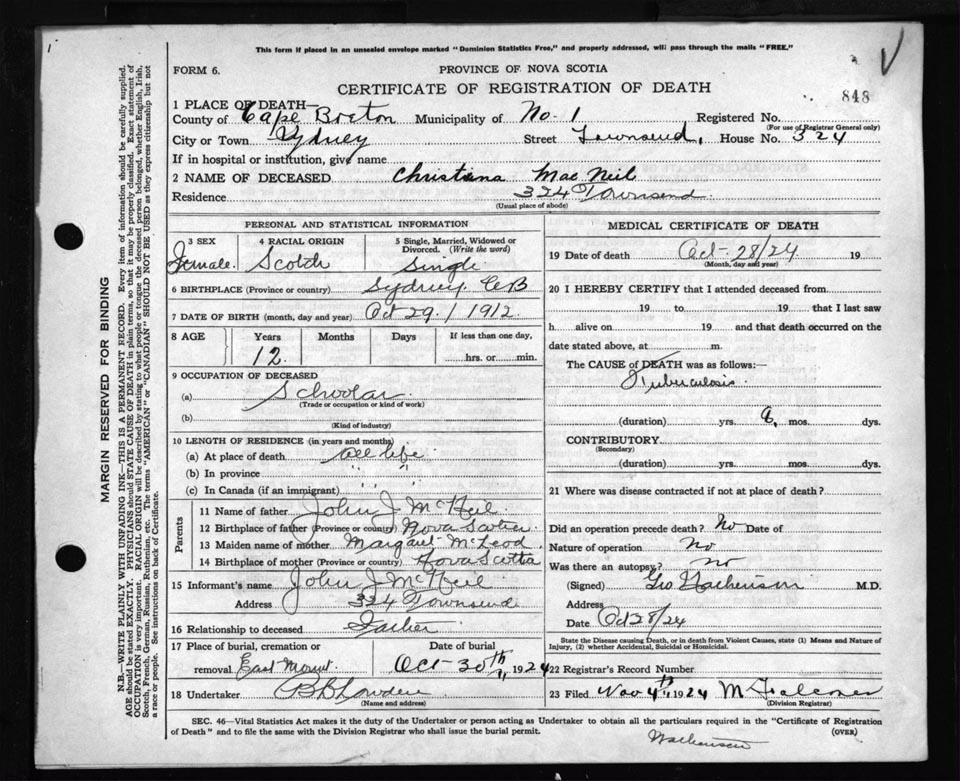 This form if placed in an unsealed envelope marked "Dominion Statistics Free," and properly addressed, will pass through the mails "FREE."
FORM 6.
PROVINCE OF NOVA SCOTIA
CERTIFICATE OF REGISTRATION OF DEATH
848
1 PLACE OF DEATH—
County of Cape Breton Municipality of No. 1 Registered No.
(For use of Registrar General only)
City or Town Sydney Street Townsend, House No. 324
If in hospital or institution, give name
2 NAME OF DECEASED Christena Mac Neil
Residence 324 Townsend
(Usual place of abode)
PERSONAL AND STATISTICAL INFORMATION
3 SEX 4 RACIAL ORIGIN 5 Single, Married, Widowed or Divorced. (Write the word)
Female. Scotch Single
6 BIRTHPLACE (Province or country) Sydney CB
7 DATE OF BIRTH (month, day and year) Oct 29 / 1912
8 AGE Years Months Days If less than one day,
12. hrs. or min.
9 OCCUPATION OF DECEASED
(a) Schoolar
(Trade or occupation or kind of work)
(b)
(Kind of industry)
10 LENGTH OF RESIDENCE (in years and months)
(a) At place of death all life
(b) In province " "
(c) In Canada (if an immigrant) " "
Parents
11 Name of father John J McNeil
12 Birthplace of father (Province or country) Nova Scotia
13 Maiden name of mother Margaret McLeod
14 Birthplace of mother (Province or country) Nova Scotia
15 Informant's name John J McNeil
Address 324 Townsend
16 Relationship to deceased Father
17 Place of burial, cremation or removal East Mount Date of burial Oct 30th, 1924
18 Undertaker
(Name and address)
MEDICAL CERTIFICATE OF DEATH
19 Date of death Oct-28/24 19
(Month, day and year)
20 I HEREBY CERTIFY that I attended deceased from
19 to 19 that I last saw
h alive on 19 and that death occurred on the
date stated above, at m.
The CAUSE of DEATH was as follows:—
Tuberculosis
(duration) yrs. mos. dys.
CONTRIBUTORY
(Secondary)
(duration) yrs. mos. dys.
21 Where was disease contracted if not at place of death?
Did an operation precede death? No Date of
Nature of operation no
Was there an autopsy? no
(Signed) Geo M.D.
Address
Date Oct 28/24
State the Disease causing Death, or in death from Violent Causes, state (1) Means and Nature of Injury, (2) whether Accidental, Suicidal or Homicidal.
22 Registrar's Record Number
23 Filed Nov 4th, 1924
(Division Registrar)
SEC. 46—Vital Statistics Act makes it the duty of the Undertaker or person acting as Undertaker to obtain all the particulars required in the "Certificate of Registration
of Death" and to file the same with the Division Registrar who shall issue the burial permit.
(OVER)
MARGIN RESERVED FOR BINDING
N.B.—WRITE PLAINLY WITH UNFADING INK—THIS IS A PERMANENT RECORD. Every item of information should be carefully supplied.
AGE should be stated EXACTLY. PHYSICIANS should STATE CAUSE OF DEATH in plain terms, so that it may be properly classified. Exact statement of
OCCUPATION is very important. RACIAL ORIGIN will be described by stating to what people or tongue the deceased person belonged, whether English, Irish,
Scotch, French, German, Russian, Ruthenian, etc. The terms "AMERICAN" or "CANADIAN" SHOULD NOT BE USED as they express citizenship but not
a race or people. See instructions on back of Certificate.